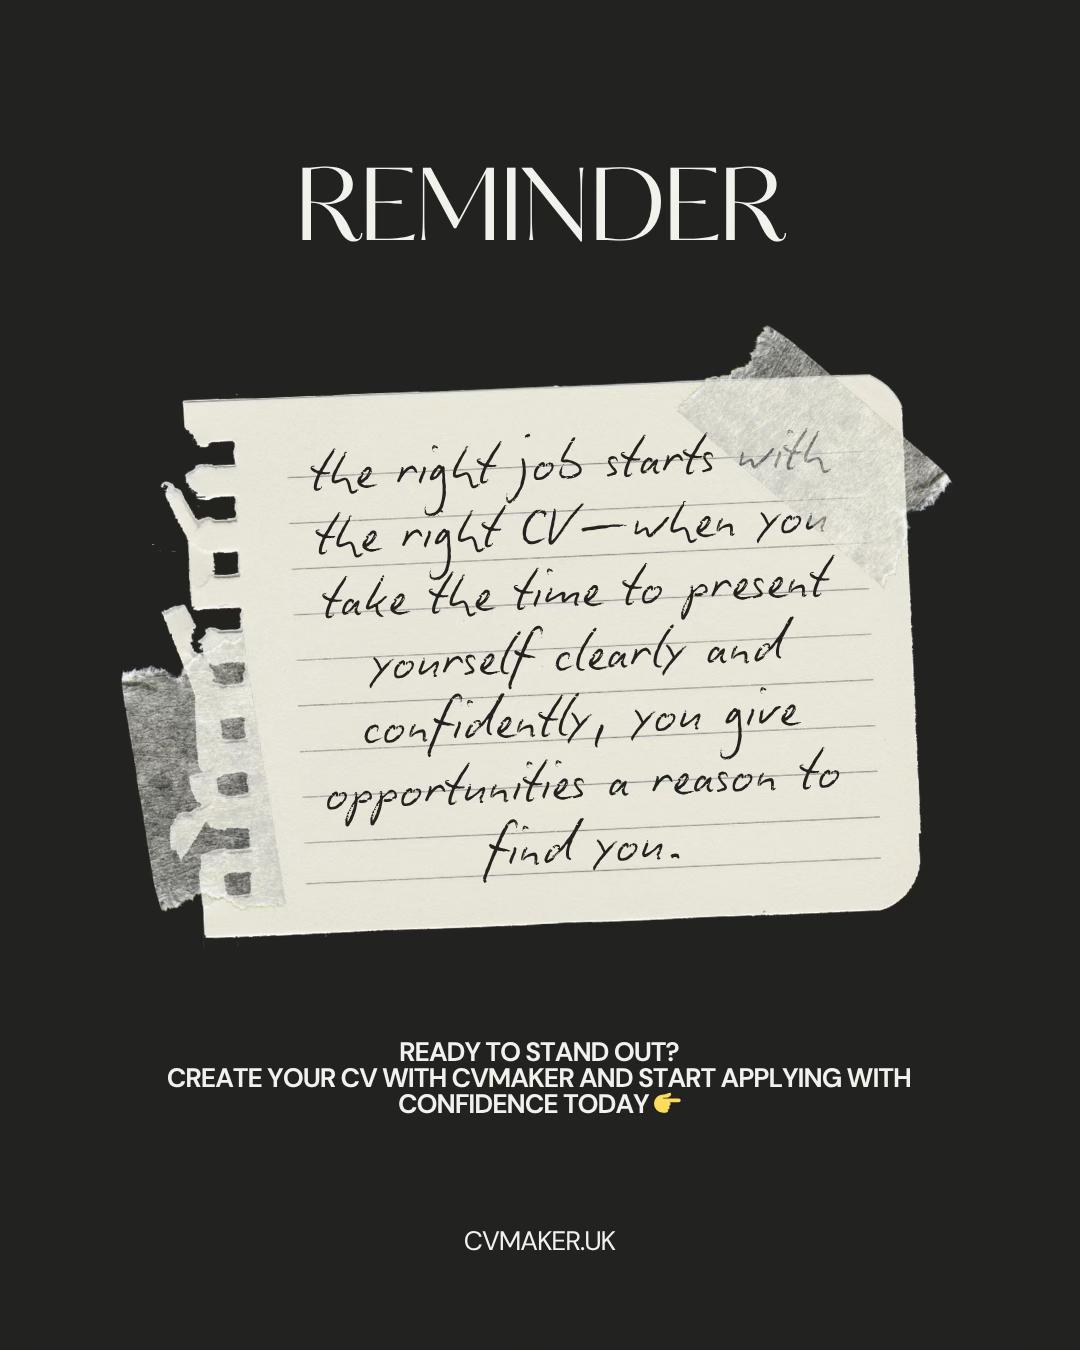 REMINDER
the right job starts with
the right CV—when you
take the time to present
yourself clearly and
confidently, you give
opportunities a reason to
find you.
READY TO STAND OUT?
CREATE YOUR CV WITH CVMAKER AND START APPLYING WITH
CONFIDENCE TODAY 👉
CVMAKER.UK